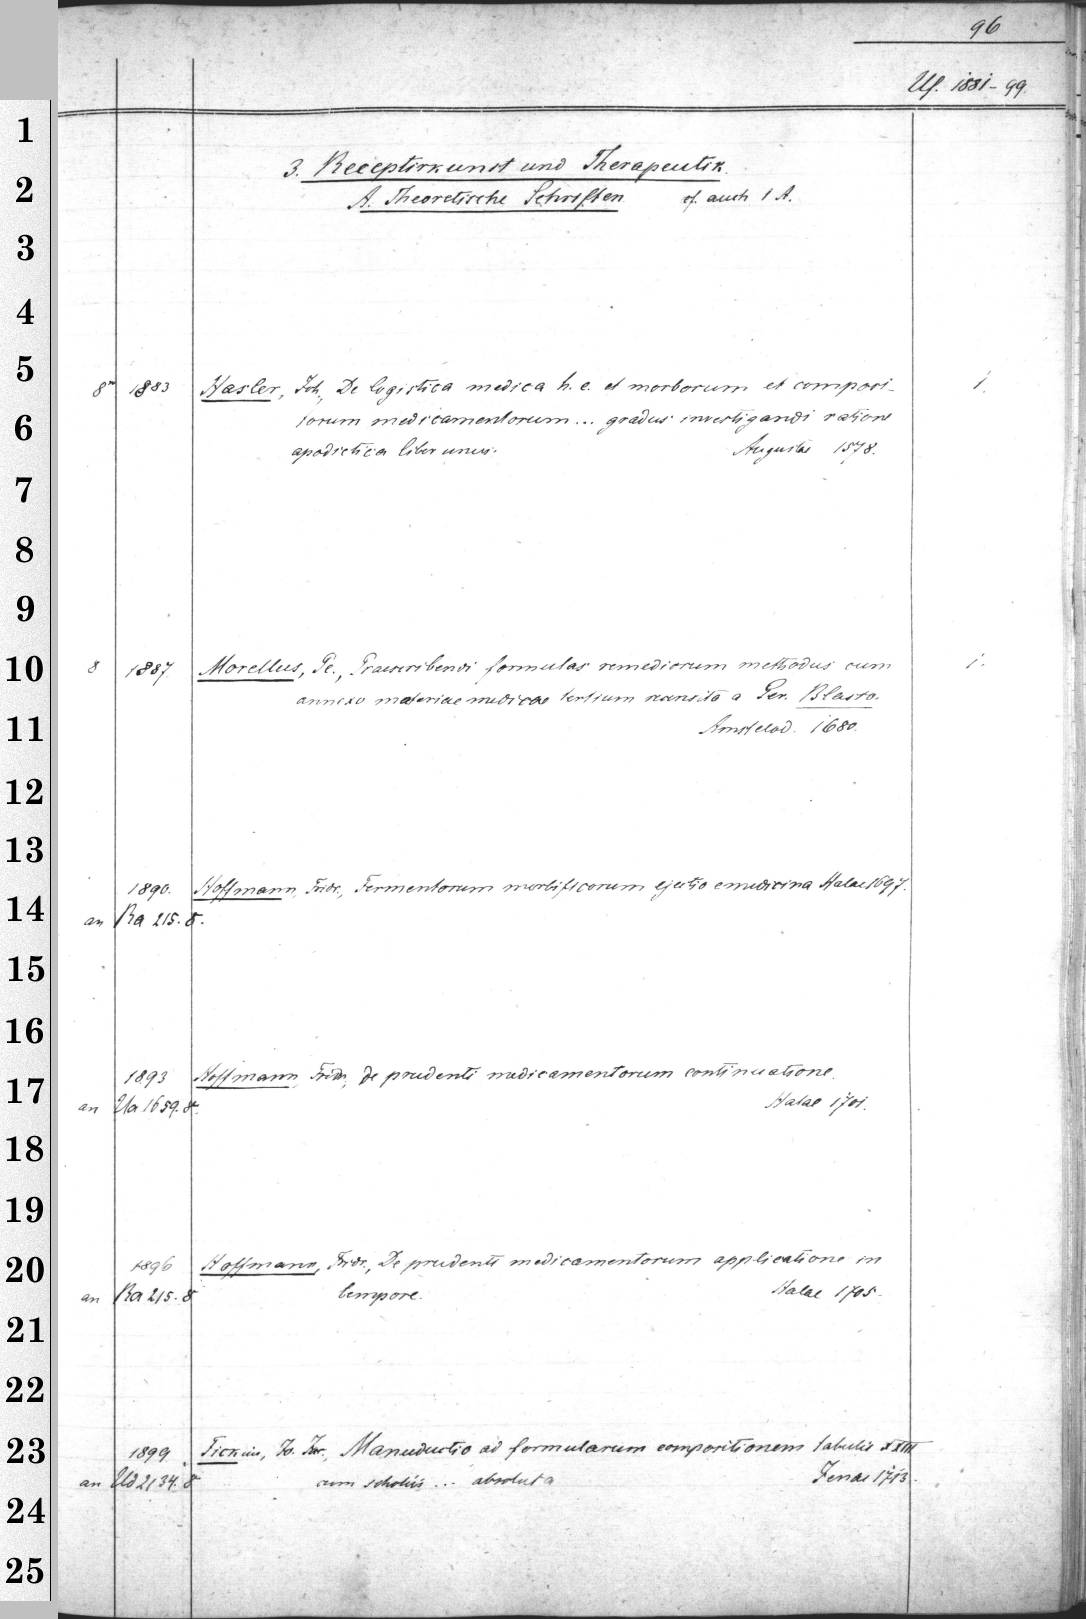 96
Uf. 1881-99.
1
3. Receptirkunst und Therapeutik.
2
A. Theoretische Schriften cf. auch 1 A.
3
4
5
8° 1883 Hasler, Joh., De logistica medica h. e. et morborum et composi- 1.
6
torum medicamentorum... gradus investigandi ratione
apodictica liber unus. Augustae 1578.
7
8
9
10
8 1887. Morellus, Pe., Praescribendi formulas remediorum methodus cum 1.
annexo materiae medicae tertium recensita a Ger. Blasio.
11
Amstelod. 1680.
12
13
1890. Hoffmann, Fridr., Fermentorum morbificorum ejectio e medicina Halae 1697.
14
an Ra 215. 8.
15
16
1893 Hoffmann, Fridr., de prudenti medicamentorum continuatione.
17
an Ua 1659. 8. Halae 1701.
18
19
1896 Hoffmann, Fridr., De prudenti medicamentorum applicatione in
20
an Ra 215. 8 tempore. Halae 1705.
21
22
23
1899. Tickius, Jo. Manuductio ad formularum compositionem tabulis XXIII
an Ud 2134. 8 cum scholiis ... absoluta Jenae 1713.
24
25